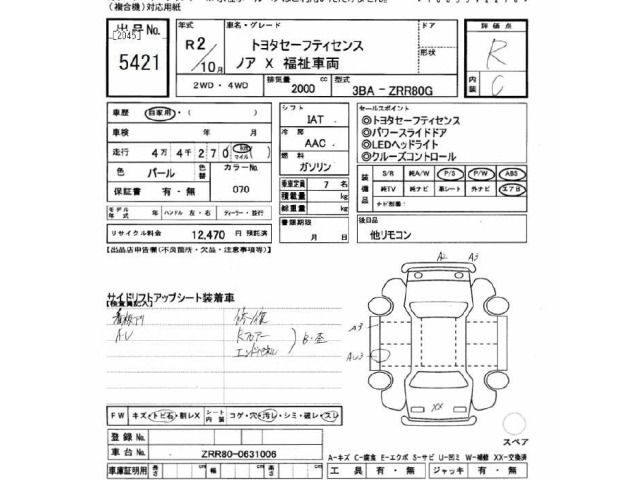 (複合機)対応用紙
出品No.
[2045]
5421
年式
R2/10月
車名・グレード
トヨタセーフティセンス
ノア X 福祉車両
ドア
形状
評価点
R
内装
C
2WD・4WD
排気量
2000
cc
型式
3BA - ZRR80G
車歴 自家用・( )
車検 年 月
走行 4万4千270 km マイル ( )
色 パール
色替
カラーNo.
070
保証書 有・無
シフト
IAT
冷房
AAC
燃料
ガソリン
乗車定員 7 名
積載量 kg
総重量 kg
セールスポイント
◎トヨタセーフティセンス
◎パワースライドドア
◎LEDヘッドライト
◎クルーズコントロール
装備品
S/R 純A/W P/S P/W ABS
純TV 純ナビ 革シート 外ナビ エアB
ナビ形態:
モデル年式 年 ハンドル 左・右 ディーラー・並行
書類期限
月 日
後日品
他リモコン
リサイクル料金 12,470 円 預託済
【出品店申告欄(不良箇所・欠品・注意事項等)】
サイドリフトアップシート装着車
【検査員記入】
看板下り
AU
修復
Rフロアー
エンドパネル
B・歪
A2 A3
A3
AU3
XX
スペア
FW キズ・トビ石・割レX
シート内装
コゲ・穴・汚レ・シミ・破レ・スレ
登録No.
車台No. ZRR80-0631006
A-キズ C-腐食 E-エクボ S-サビ U-凹ミ W-補修 XX-交換済
車庫証明用 長さ cm 幅 cm 高さ cm
工具 有・無 ジャッキ 有・無